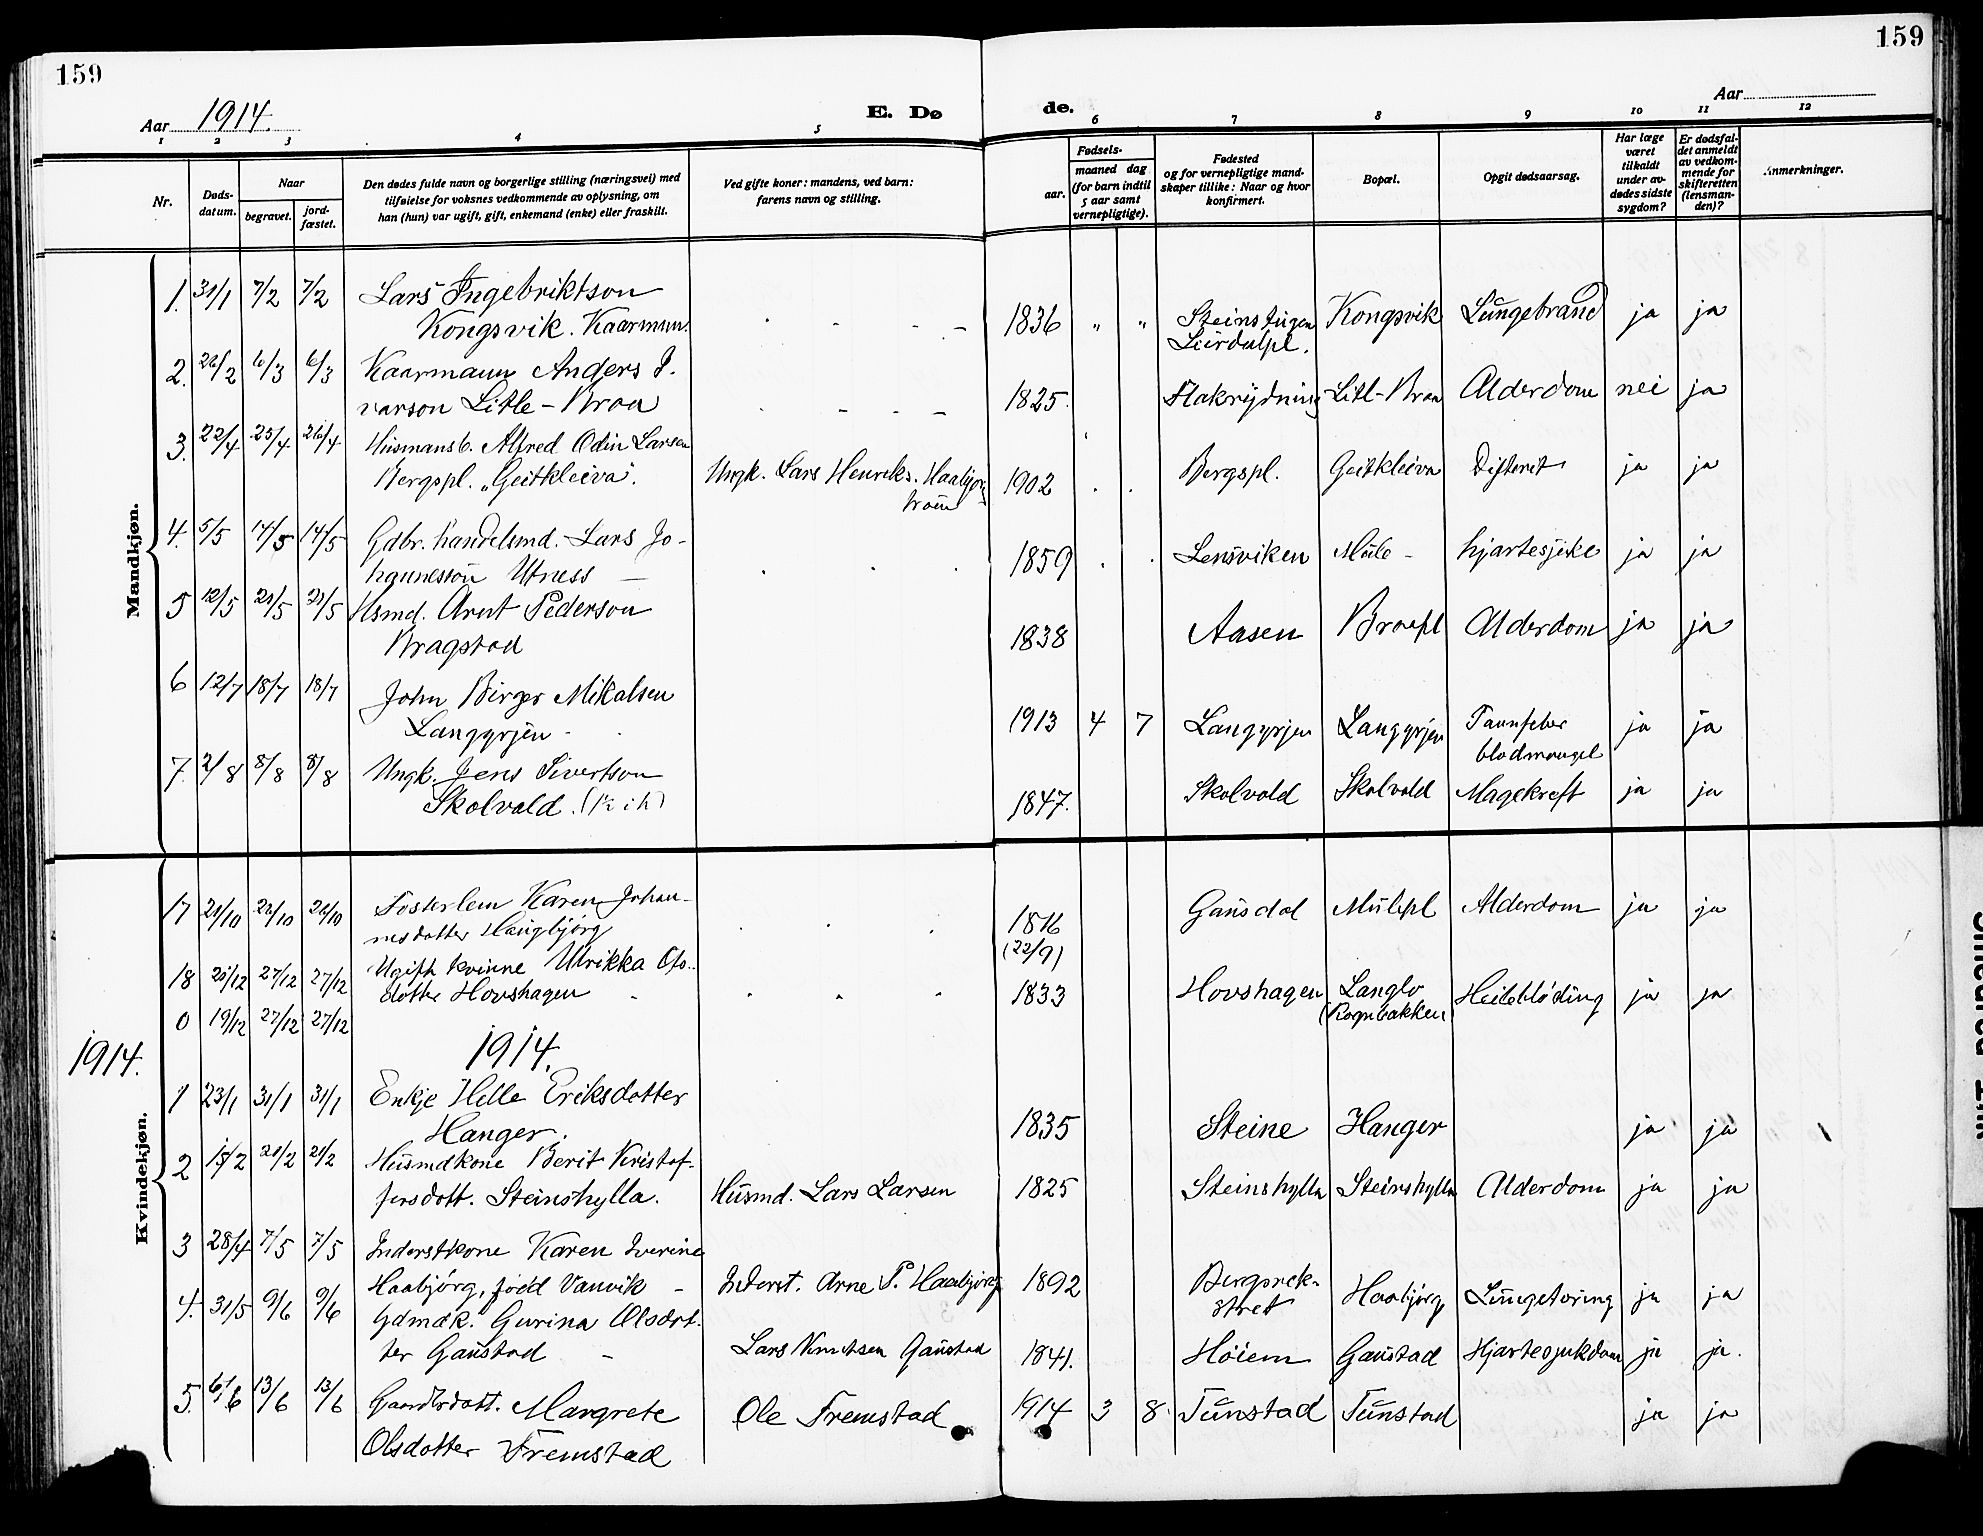 159
159
Aar 1914.
E. Dø
de.
Aar
1 2 3 4 5 6 7 8 9 10 11 12
Nr.
Døds-
datum.
Naar
begravet.
jord-
fæstet.
Den dødes fulde navn og borgerlige stilling (næringsvei) med
tilføielse for voksnes vedkommende av oplysning, om
han (hun) var ugift, gift, enkemand (enke) eller fraskilt.
Ved gifte koner: mandens, ved barn:
farens navn og stilling.
Fødsels-
aar.
maaned dag
(for barn indtil
5 aar samt
vernepligtige).
Fødested
og for vernepligtige mand-
skaper tillike: Naar og hvor
konfirmert.
Bopæl.
Opgit dødsaarsag.
Har læge
været
tilkaldt
under av-
dødes sidste
sygdom?
Er dødsfal-
det anmeldt
av vedkom-
mende for
skifteretten
(lensman-
den)?
Anmerkninger.
Mandkjøn.
1. 31/1 7/2 7/2 Lars Ingebriktson
Kongsvik. Kaarmann. 1836 " " Steinstugen Kongsvik Lungebrand ja ja
2. 26/2 6/3 6/3 Kaarmann Anders I-
varson Litle-Braa 1825. Flakrydning Litl-Braa Alderdom nei ja
3. 22/4 25/4 26/4 Husmansb. Alfred Odin Larsen
Bergspl. "Geitkleiva". Ungk. Lars Henriks. Haabjørg 1902 Bergspl. Geitkleiva Difterit ja ja
4. 5/5 14/5 14/5 Gdbr. handelsmd. Lars Jo-
hannesson Utness 1859 Lensviken Mule - hjartesjuke ja ja
5 12/5 21/5 21/5 Hsmd. Arnt Pederson
Bragstad 1838 Aasen Braapl Alderdom ja ja
6 12/7 18/7 18/7 John Birger Mikalsen
Langgrjen - 1913 4 7 Langgrjen Langgrjen Tannfeber
blodmangel ja ja
7. 2/8 8/8 8/8 Ungk. Jens Sivertson
Skolvold. 1847. Skolvold Skolvold Magekreft ja ja
Kvindekjøn.
17 21/10 26/10 26/10 Fosterlem Karen Johan-
nesdotter Haugbjørg 1816
(22/9) Gausdal Mulepl Alderdom ja ja
18 21/12 27/12 27/12 Ugift kvinne Ulrikka Ols-
dotter Hovshagen 1833 Hovshagen Langlo
(Rognbakken) Heilebløding ja ja
0 19/12 27/12 27/12
1914. 1914.
1 23/1 31/1 31/1 Enkje Helle Eriksdotter
Hanger. 1835 Steine Hanger ja ja
2 15/2 21/2 21/2 Husmdkone Berit Kristof-
fersdott. Steinshylla. Husmd. Lars Larsen 1825 Steinshylla Steinshylla Alderdom ja ja
3 28/4 7/5 7/5 Inderstkone Karen Iverine
Haabjørg, född Vanvik - Inderst. Arne P. Haabjørg 1892 Haabjørg Lungetæring ja ja
4. 31/5 9/6 9/6 Gdmdk. Gurina Olsdot-
ter Gaustad - Lars Knutsen Gaustad 1841. Høiem Gaustad Hjartesjukdom ja ja.
5. 6/6 13/6 13/6 Gaardbrdott. Margrete
Olsdotter Fremstad Ole Fremstad 1914 3 8. Tunstad Tunstad ja ja